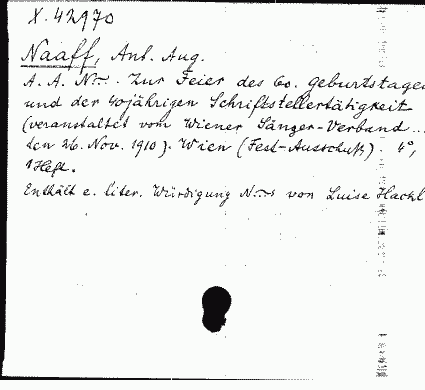 X. 42970
Naaff, Ant. Aug.
A. A. N... Zur Feier des 60. Geburtstages
und der 40jährigen Schriftstellertätigkeit
(veranstaltet vom Wiener Sänger-Verband ...
den 26. Nov. 1910). Wien (Fest-Ausschuß). 4°,
1 Heft.
Enthält e. liter. Würdigung N...s von Luise Hackl